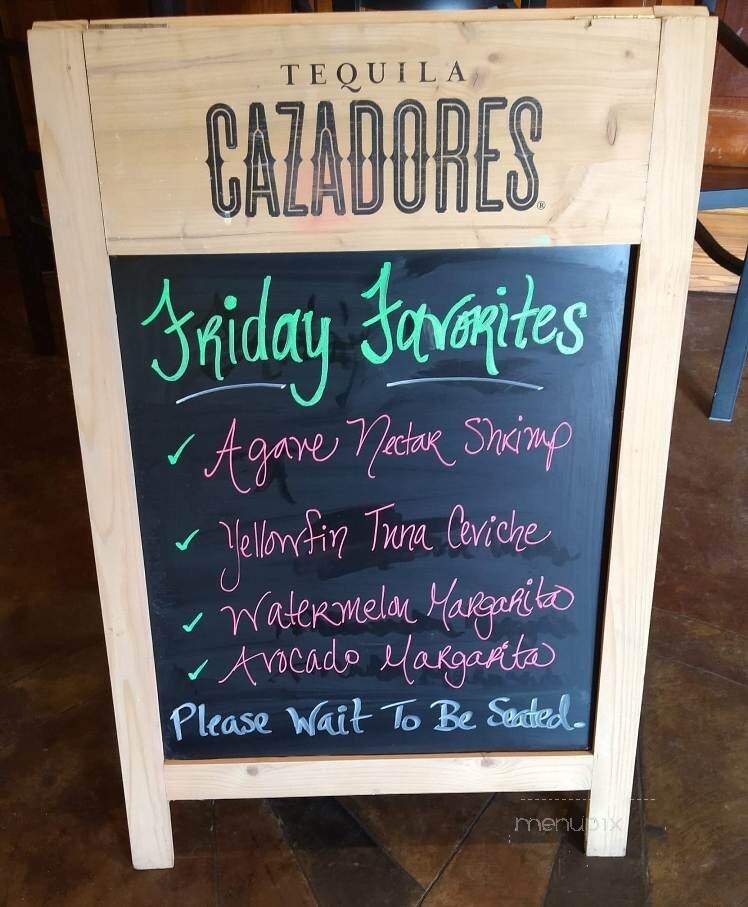 TEQUILA
CAZADORES®
Friday Favorites
✓ Agave Nectar Shrimp
✓ Yellowfin Tuna Ceviche
✓ Watermelon Margarita
✓ Avocado Margarita
Please Wait To Be Seated.
menupix